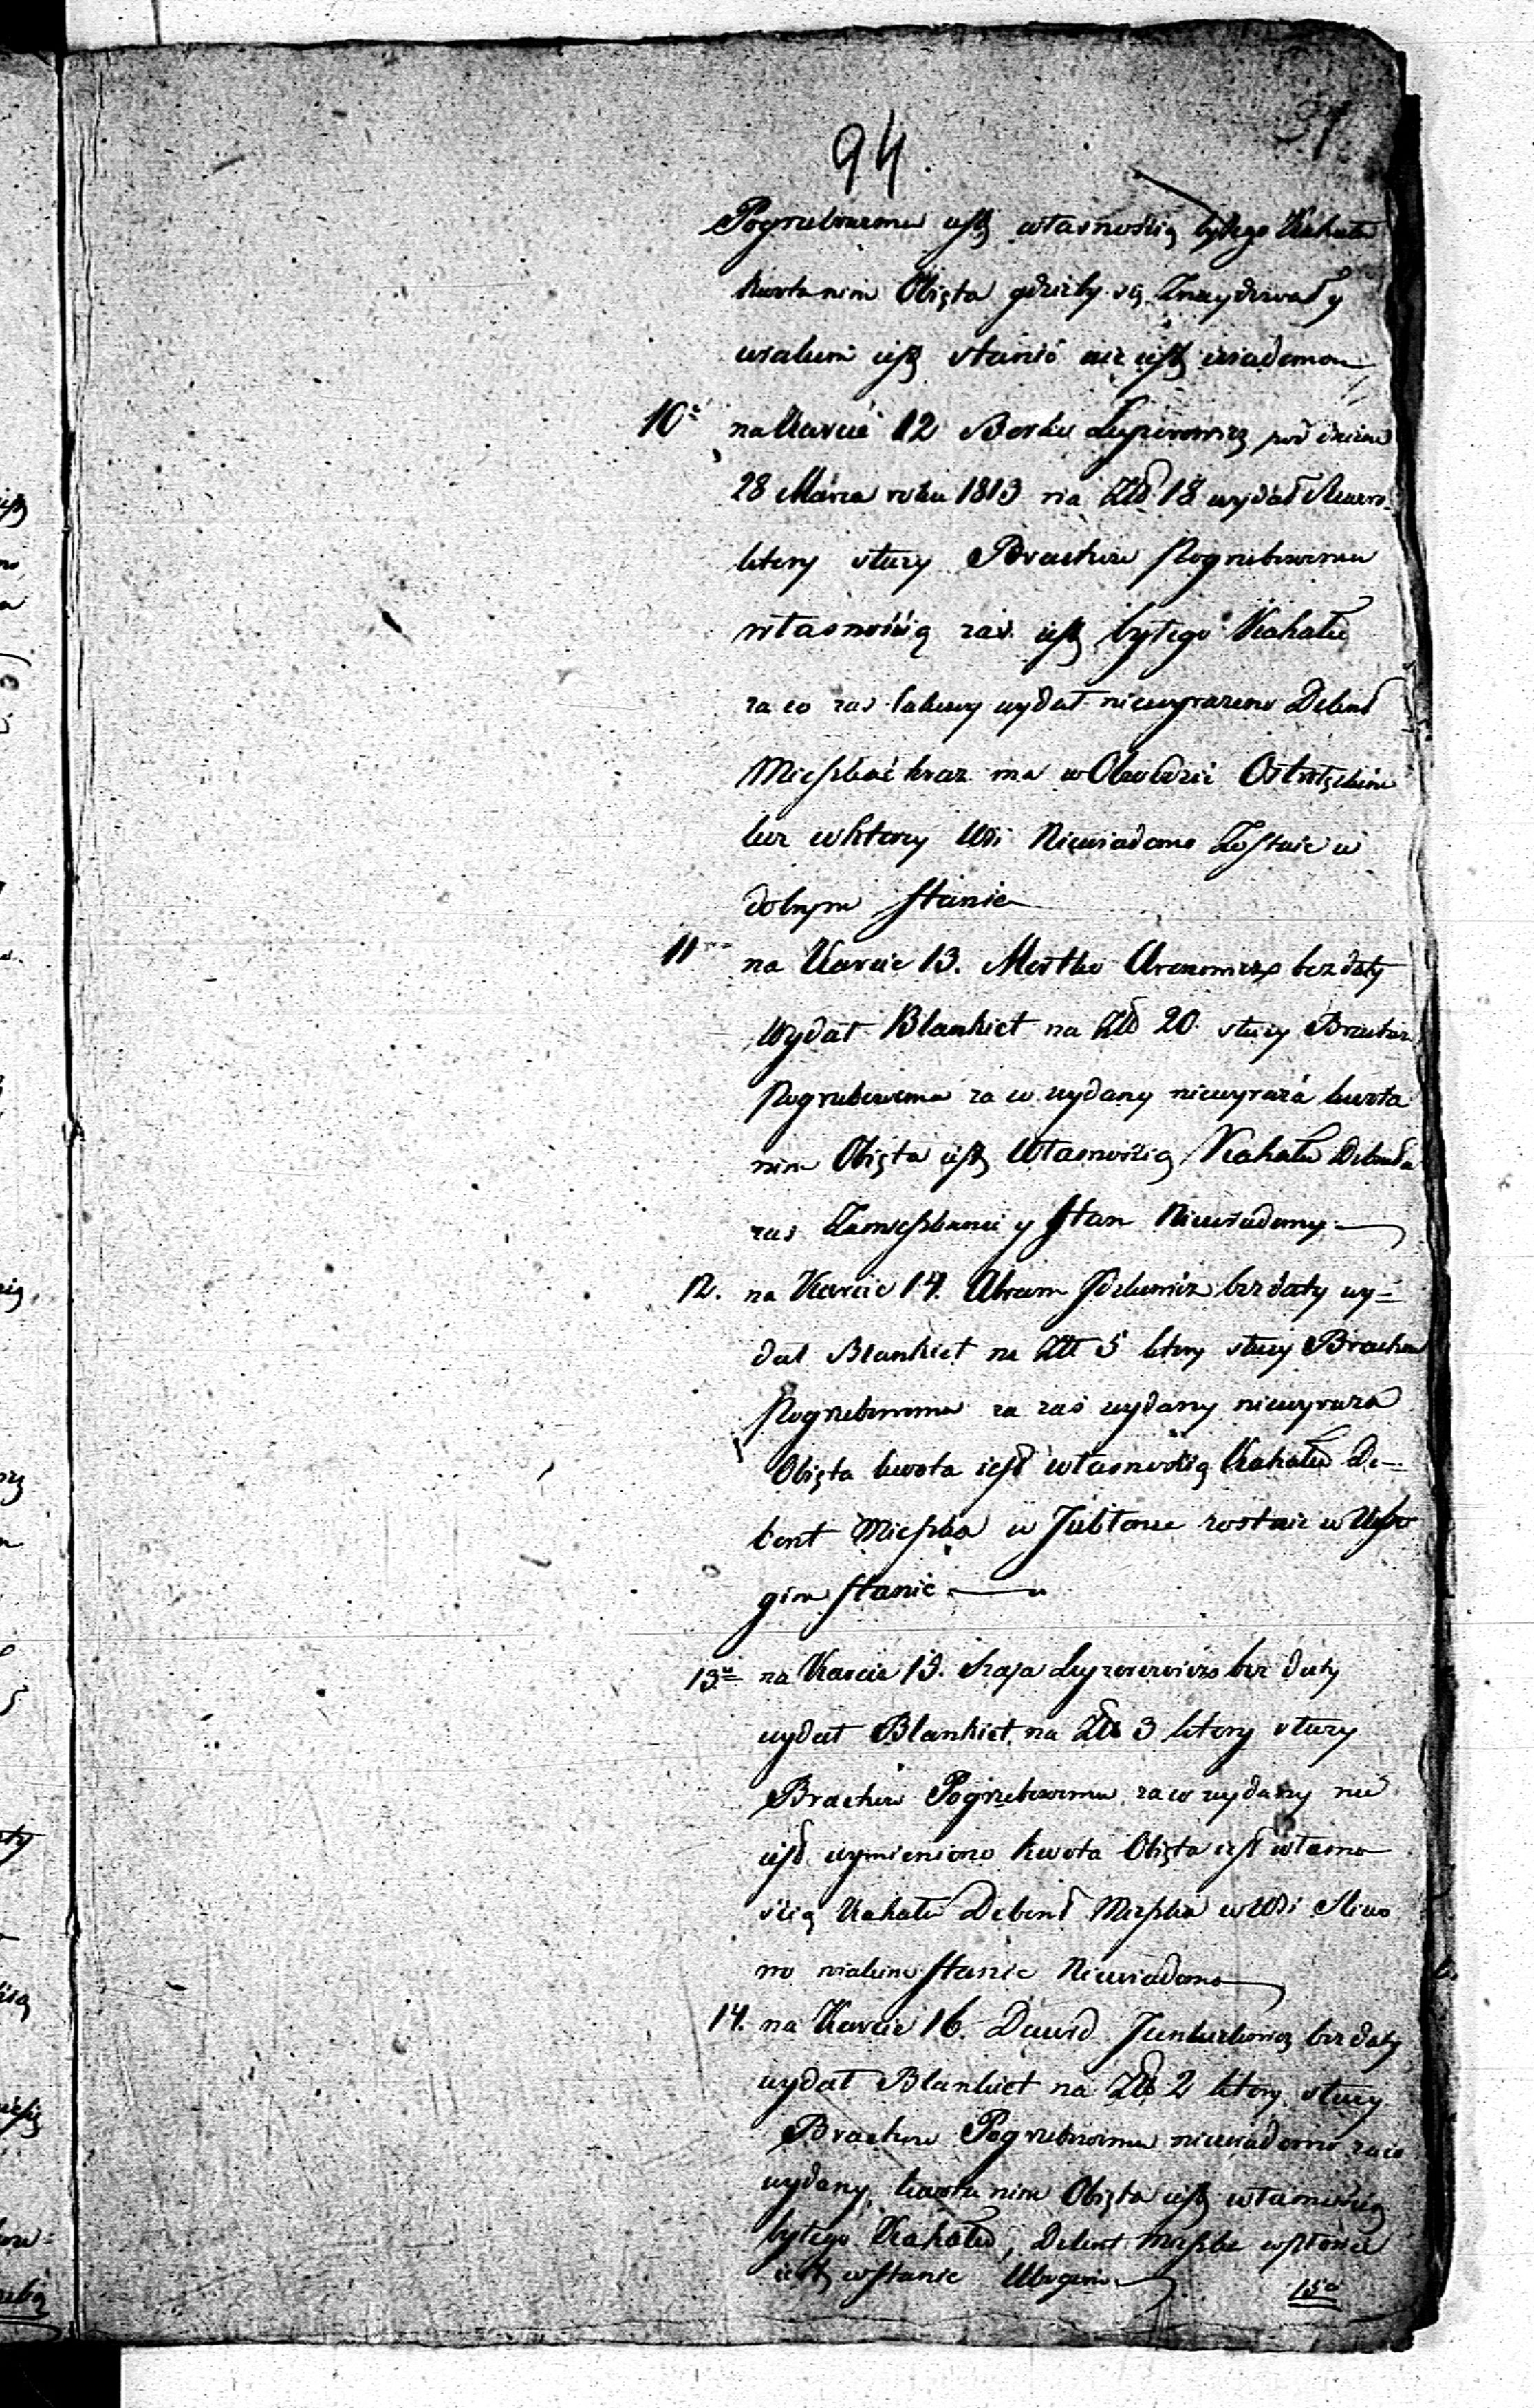 94.
Pogrzebowemu iest własnością byłego Kahału
kwota nim Obięta gdzieby się Znaydował y
w iakim iest stanie nie iest wiadomo
10. na Karcie 12 Berko Leyzerowicz pod dniem
28 Marca roku 1813 na Złt 18 wydał
ktory służy Bractwu Pogrzebowemu
własnością zaś iest byłego Kahału
za co zaś takowy wydał niewyrażono Debent
Mieszkać ma w Obwodzie Ostrołęckim
lecz w ktorey Wsi Niewiadomo Zostaie w
dobrym stanie
11 na Karcie 13. Mośko Aronowicz bez daty
Wydał Blankiet na Złt 20 służy Bractwu
Pogrzebowemu za co wydany niewyraża kwota
nim Obięta iest Własnością Kahału Debenta
zaś Zamieszkanie y Stan Niewiadomy
12. na Karcie 14. Abram Jckowicz bez daty wy=
dał Blankiet na Złt 5 ktory służy Bractwu
Pogrzebowemu za zaś wydany niewyraża
Obięta kwota iest własnością Kahału De=
bent Mieszka w zostaie w Ubo
gim stanie
13. na Karcie 15. Szaja Leyzerowicz bez daty
wydał Blankiet na Złt 3 ktory służy
Bractwu Pogrzebowemu za co wydany nie
iest wymieniono Kwota Obięta iest własno
ścią Kahału Debent Mieszka w Wsi
w iakim stanie Niewiadomo
14. na Karcie 16. Dawid bez daty
wydał Blankiet na Złt 2 ktory służy
Bractwu Pogrzebowemu niewiadomo za co
wydany, kwota nim Obięta iest własnością
byłego Kahału, Debent mieszka
iest w stanie Ubogim
15o